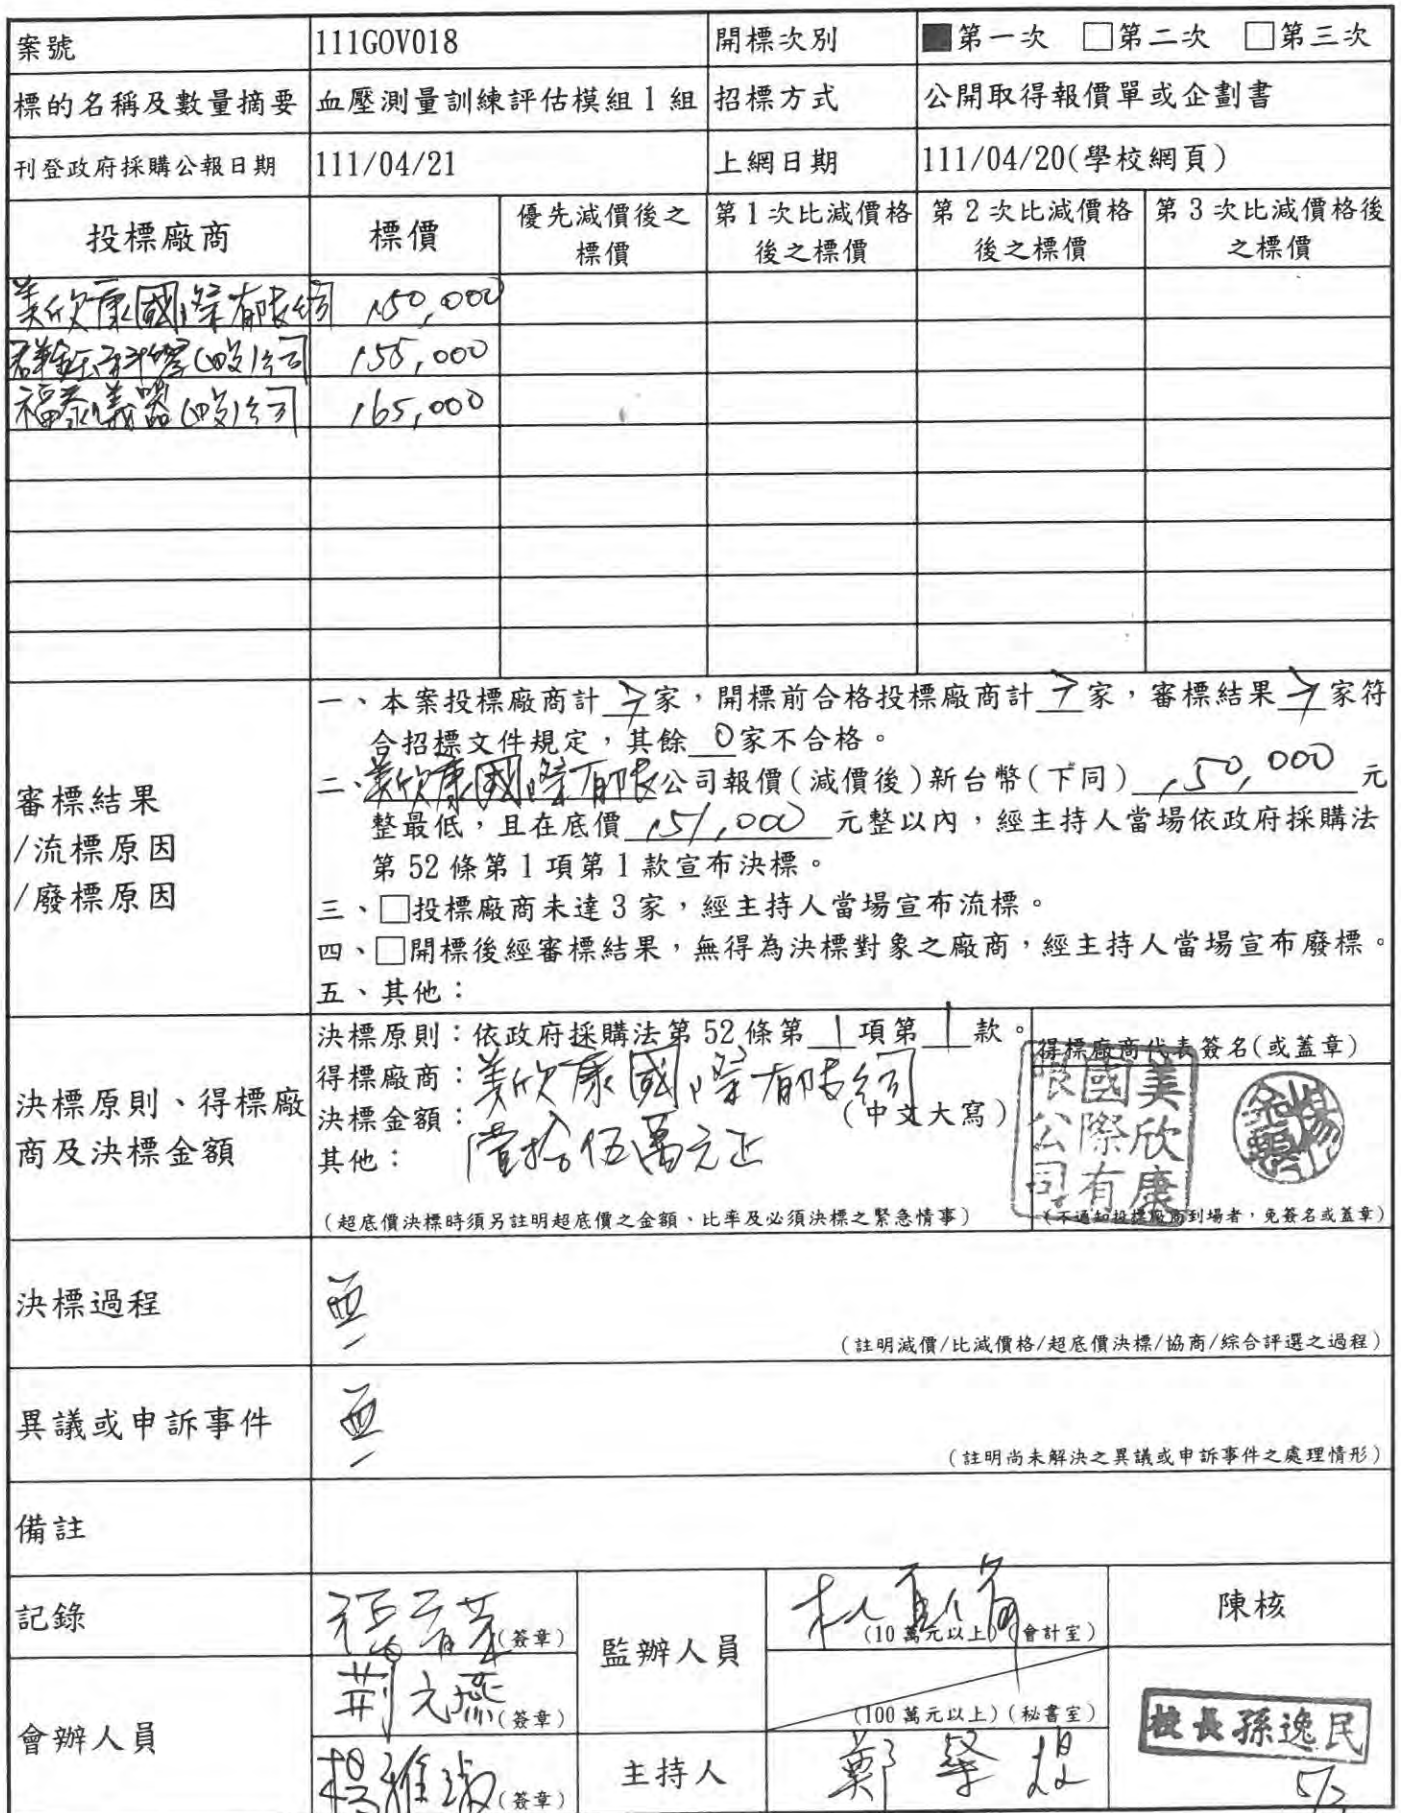 案號 111GOV018 開標次別 ■第一次 □第二次 □第三次
標的名稱及數量摘要 血壓測量訓練評估模組1組 招標方式 公開取得報價單或企劃書
刊登政府採購公報日期 111/04/21 上網日期 111/04/20(學校網頁)
投標廠商 標價 優先減價後之標價 第1次比減價格後之標價 第2次比減價格後之標價 第3次比減價格後之標價
美欣康國際有限公司 150,000
科學(股)公司 155,000
福泰儀器(股)公司 165,000
審標結果
/流標原因
/廢標原因
一、本案投標廠商計 家，開標前合格投標廠商計 家，審標結果 家符
合招標文件規定，其餘 0 家不合格。
二、美欣康國際有限公司報價(減價後)新台幣(下同) 150,000 元
整最低，且在底價 151,000 元整以內，經主持人當場依政府採購法
第52條第1項第1款宣布決標。
三、□投標廠商未達3家，經主持人當場宣布流標。
四、□開標後經審標結果，無得為決標對象之廠商，經主持人當場宣布廢標。
五、其他：
決標原則、得標廠商及決標金額
決標原則：依政府採購法第52條第 1 項第 1 款。
得標廠商：美欣康國際有限公司
決標金額： (中文大寫)
其他： 壹拾伍萬元正
(超底價決標時須另註明超底價之金額、比率及必須決標之緊急情事)
得標廠商代表簽名(或蓋章)
美欣康國際有限公司
(不通知投標廠商到場者，免簽名或蓋章)
決標過程
(註明減價/比減價格/超底價決標/協商/綜合評選之過程)
異議或申訴事件
(註明尚未解決之異議或申訴事件之處理情形)
備註
記錄 (簽章) 監辦人員 (10萬元以上)(會計室) 陳核
會辦人員 荊元燕 (簽章) (100萬元以上)(秘書室) 校長孫逸民
(簽章) 主持人